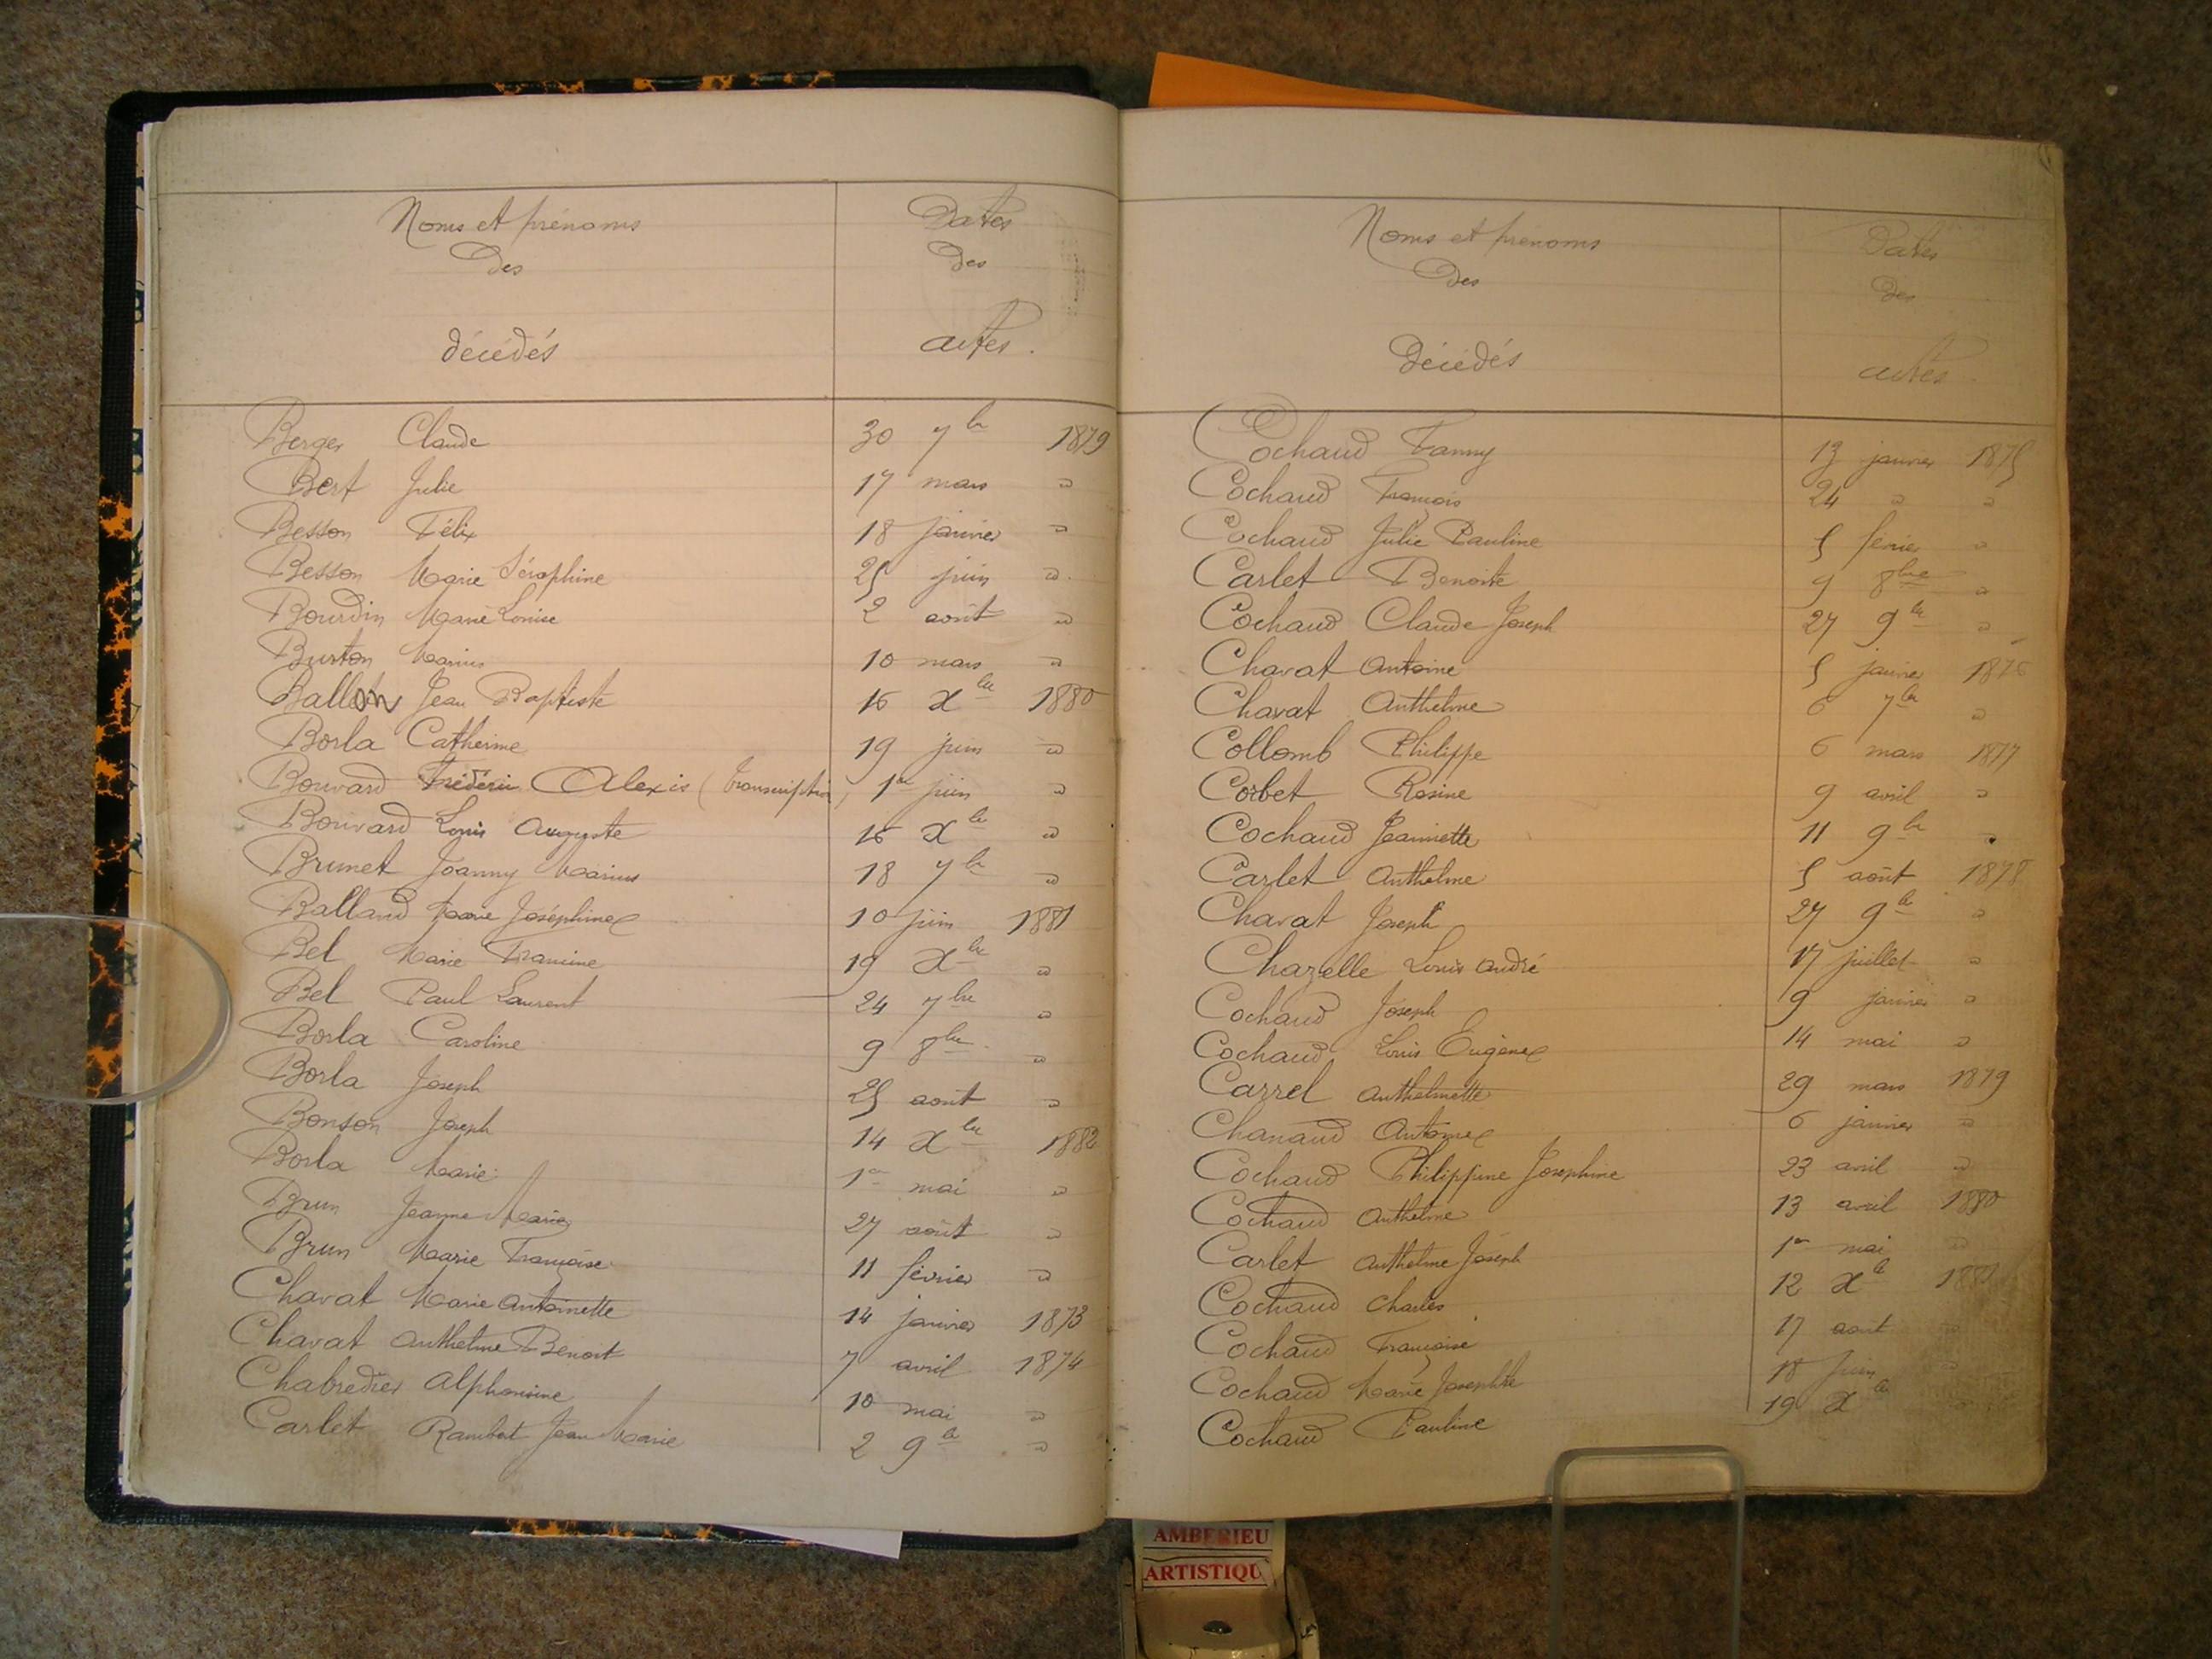 Noms et prénoms Dates
des des
décédés actes.
Berger Claude 30 7bre 1879
Bert Julie 17 mars "
Besson Félix 18 janvier "
Besson Marie Séraphine 25 juin "
Bourdin Marie Louise 2 août "
Burton Marius 10 mars "
Ballon Jean Baptiste 16 Xbre 1880
Borla Catherine 19 juin "
Bouvard Frédéric Alexis (transcription) 1er juin "
Bouvard Louis Auguste 16 Xbre "
Brunet Joanny Marius 18 7bre "
Balland Marie Joséphine 10 juin 1881
Bel Marie Francine 19 Xbre "
Bel Paul Laurent 24 7bre "
Borla Caroline 9 8bre "
Borla Joseph 25 août "
Bonson Joseph 14 Xbre 1882
Borla Marie 1er mai "
Brun Jeanne Marie 27 août "
Brun Marie Françoise 11 février "
Chavat Marie Antoinette 14 janvier 1873
Chavat Anthelme Benoit 7 avril 1874
Chabredier Alphonsine 10 mai "
Carlet Rambert Jean Marie 2 9bre "
Noms et prénoms Dates
des des
décédés actes.
Cochaud Fanny 13 janvier 1875
Cochaud François 24 " "
Cochaud Julie Pauline 5 février "
Carlet Benoite 9 8bre "
Cochaud Claude Joseph 27 9bre "
Chavat Antoine 5 janvier 1876
Chavat Anthelme 6 7bre "
Collomb Philippe 6 mars 1877
Corbet Rosine 9 avril "
Cochaud Jeannette 11 9bre "
Carlet Anthelme 5 août 1878
Chavat Joseph 27 9bre "
Chazelle Louis André 17 juillet "
Cochaud Joseph 9 janvier "
Cochaud Louis Eugène 14 mai "
Carrel Anthelmette 29 mars 1879
Chanaud Antoine 6 janvier "
Cochaud Philippine Josephine 23 avril "
Cochaud Anthelme 13 avril 1880
Carlet Anthelme Joseph 1er mai "
Cochaud Charles 12 Xbre
Cochaud Françoise 17 août
Cochaud Marie Josephte 18 juin
Cochaud Pauline 19 Xbre
AMBERIEU
ARTISTIQU